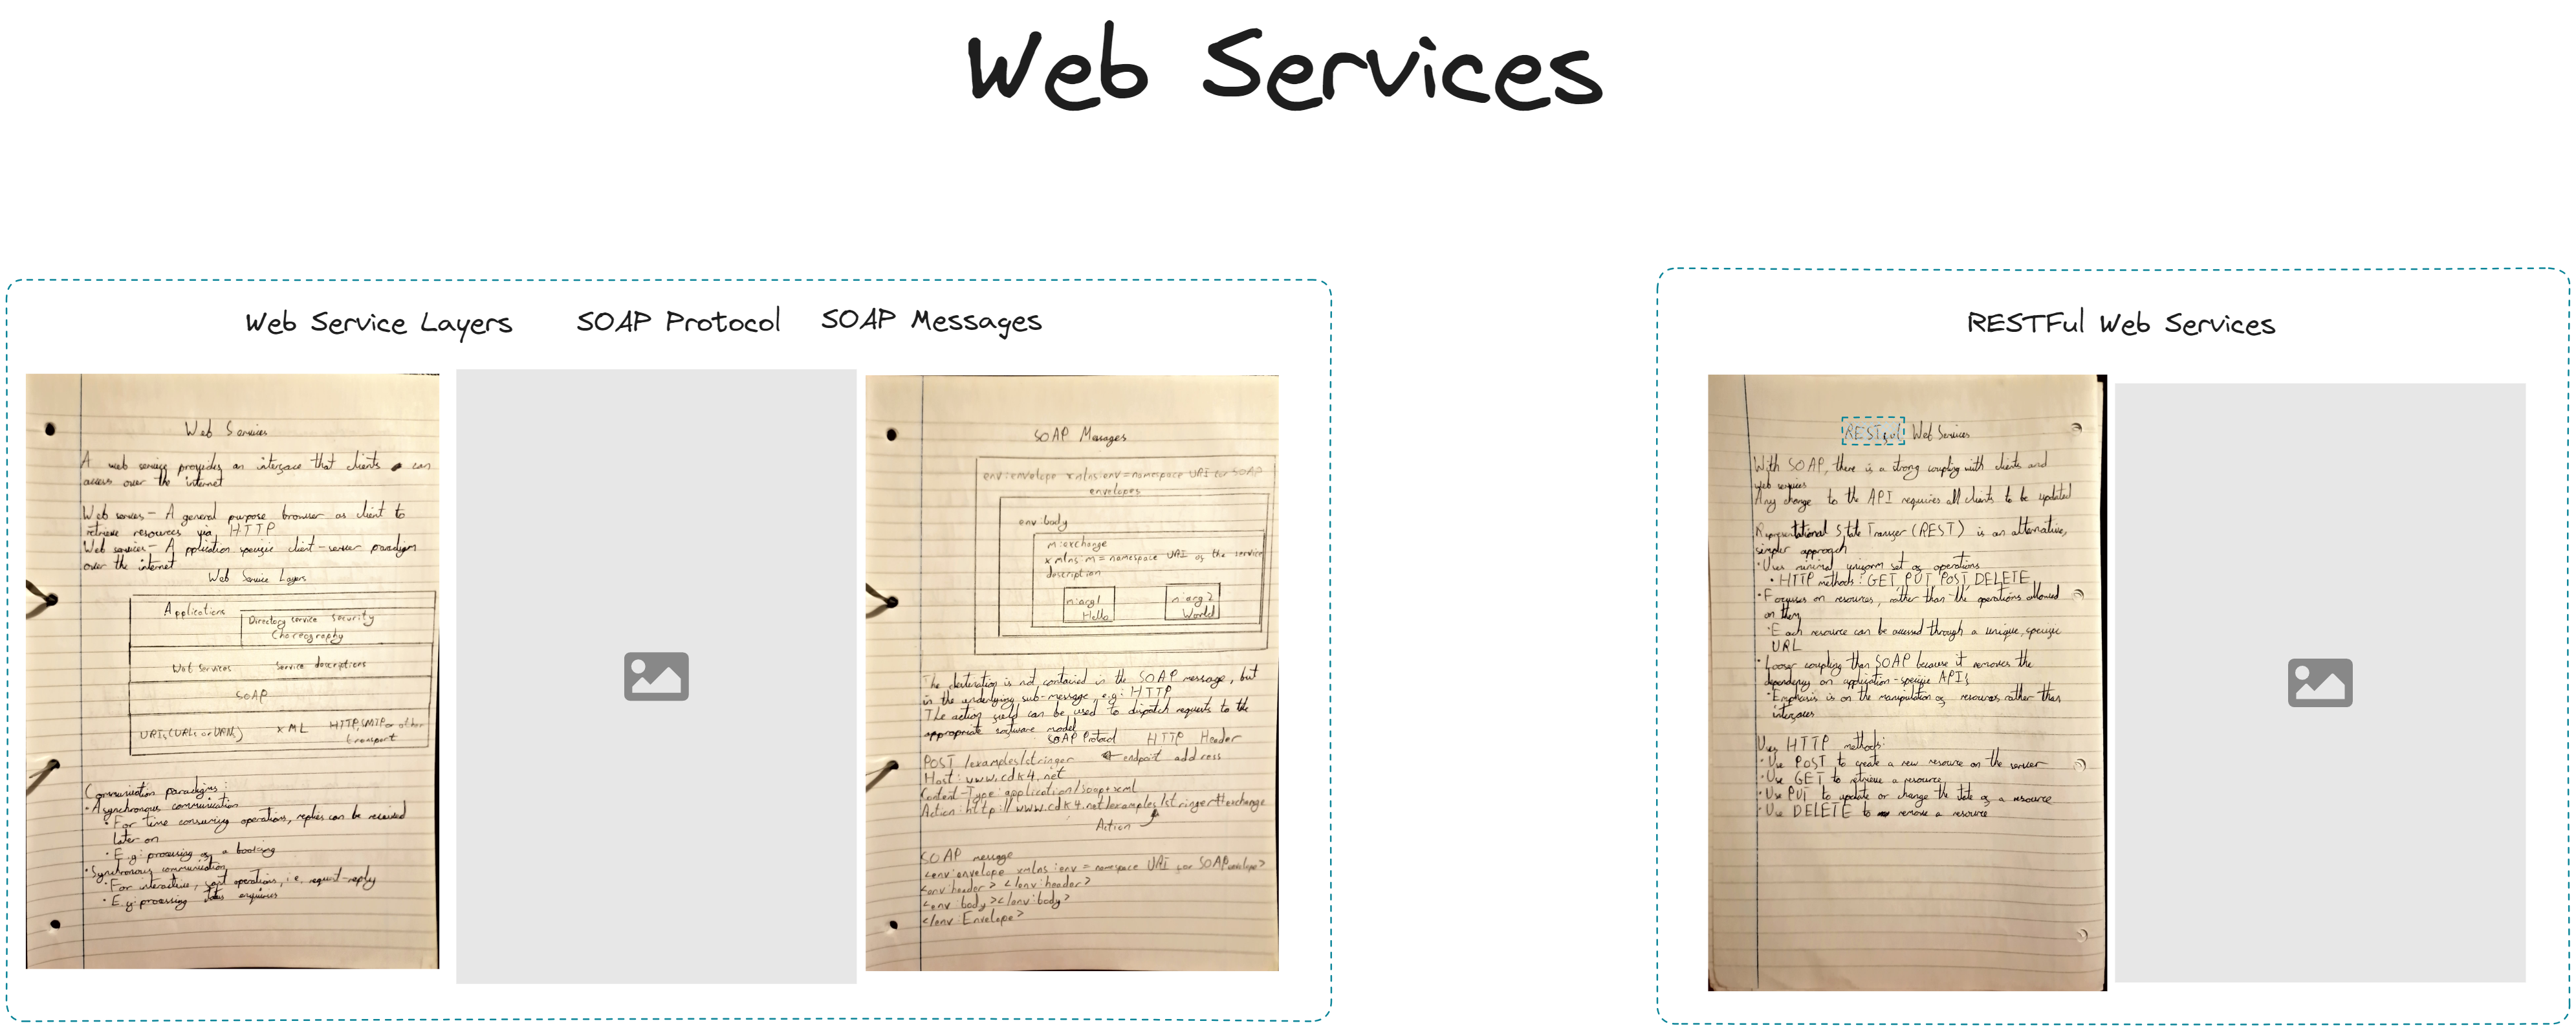 Web Services
Web Service Layers
SOAP Protocol
SOAP Messages
RESTFul Web Services
Web Services
A web service provides an interface that clients can
access over the internet
Web servers - A general purpose browser as client to
retrieve resources via HTTP
Web services - Application specific client-server paradigm
over the internet
Web Service Layers
Applications
Directory service Security
Choreography
Web Services Service descriptions
SOAP
URIs (URLs or URNs) XML HTTP, SMTP or other
transport
Communication paradigms:
• Asynchronous communication
• For time consuming operations, replies can be received
later on
• E.g: processing of a booking
• Synchronous communication
• For interactive, fast operations, i.e. request-reply
• E.g: processing status enquiries
SOAP Messages
env:envelope xmlns:env = namespace URI for SOAP
envelopes
env:body
m:exchange
xmlns:m = namespace URI of the service
description
m:arg1
Hello
m:arg2
World
The destination is not contained in the SOAP message, but
in the underlying sub-message, e.g: HTTP
The action field can be used to dispatch requests to the
appropriate software model
SOAP Protocol HTTP Header
POST /examples/stringer ← endpoint address
Host: www.cdk4.net
Content-Type: application/soap+xml
Action: http://www.cdk4.net/examples/stringer#exchange
Action
SOAP message
<env:envelope xmlns:env = namespace URI for SOAP envelope>
<env:header> </env:header>
<env:body></env:body>
</env:Envelope>
RESTful Web Services
With SOAP, there is a strong coupling with clients and
web services
Any change to the API requires all clients to be updated
Representational State Transfer (REST) is an alternative,
simpler approach
• Uses minimal uniform set of operations
• HTTP methods: GET PUT POST DELETE
• Focusses on resources, rather than the operations allowed
on them
• Each resource can be accessed through a unique, specific
URL
• Looser coupling than SOAP because it removes the
dependency on application-specific APIs
• Emphasis is on the manipulation of resources rather than
interfaces
Uses HTTP methods:
• Use POST to create a new resource on the server
• Use GET to retrieve a resource
• Use PUT to update or change the state of a resource
• Use DELETE to remove a resource